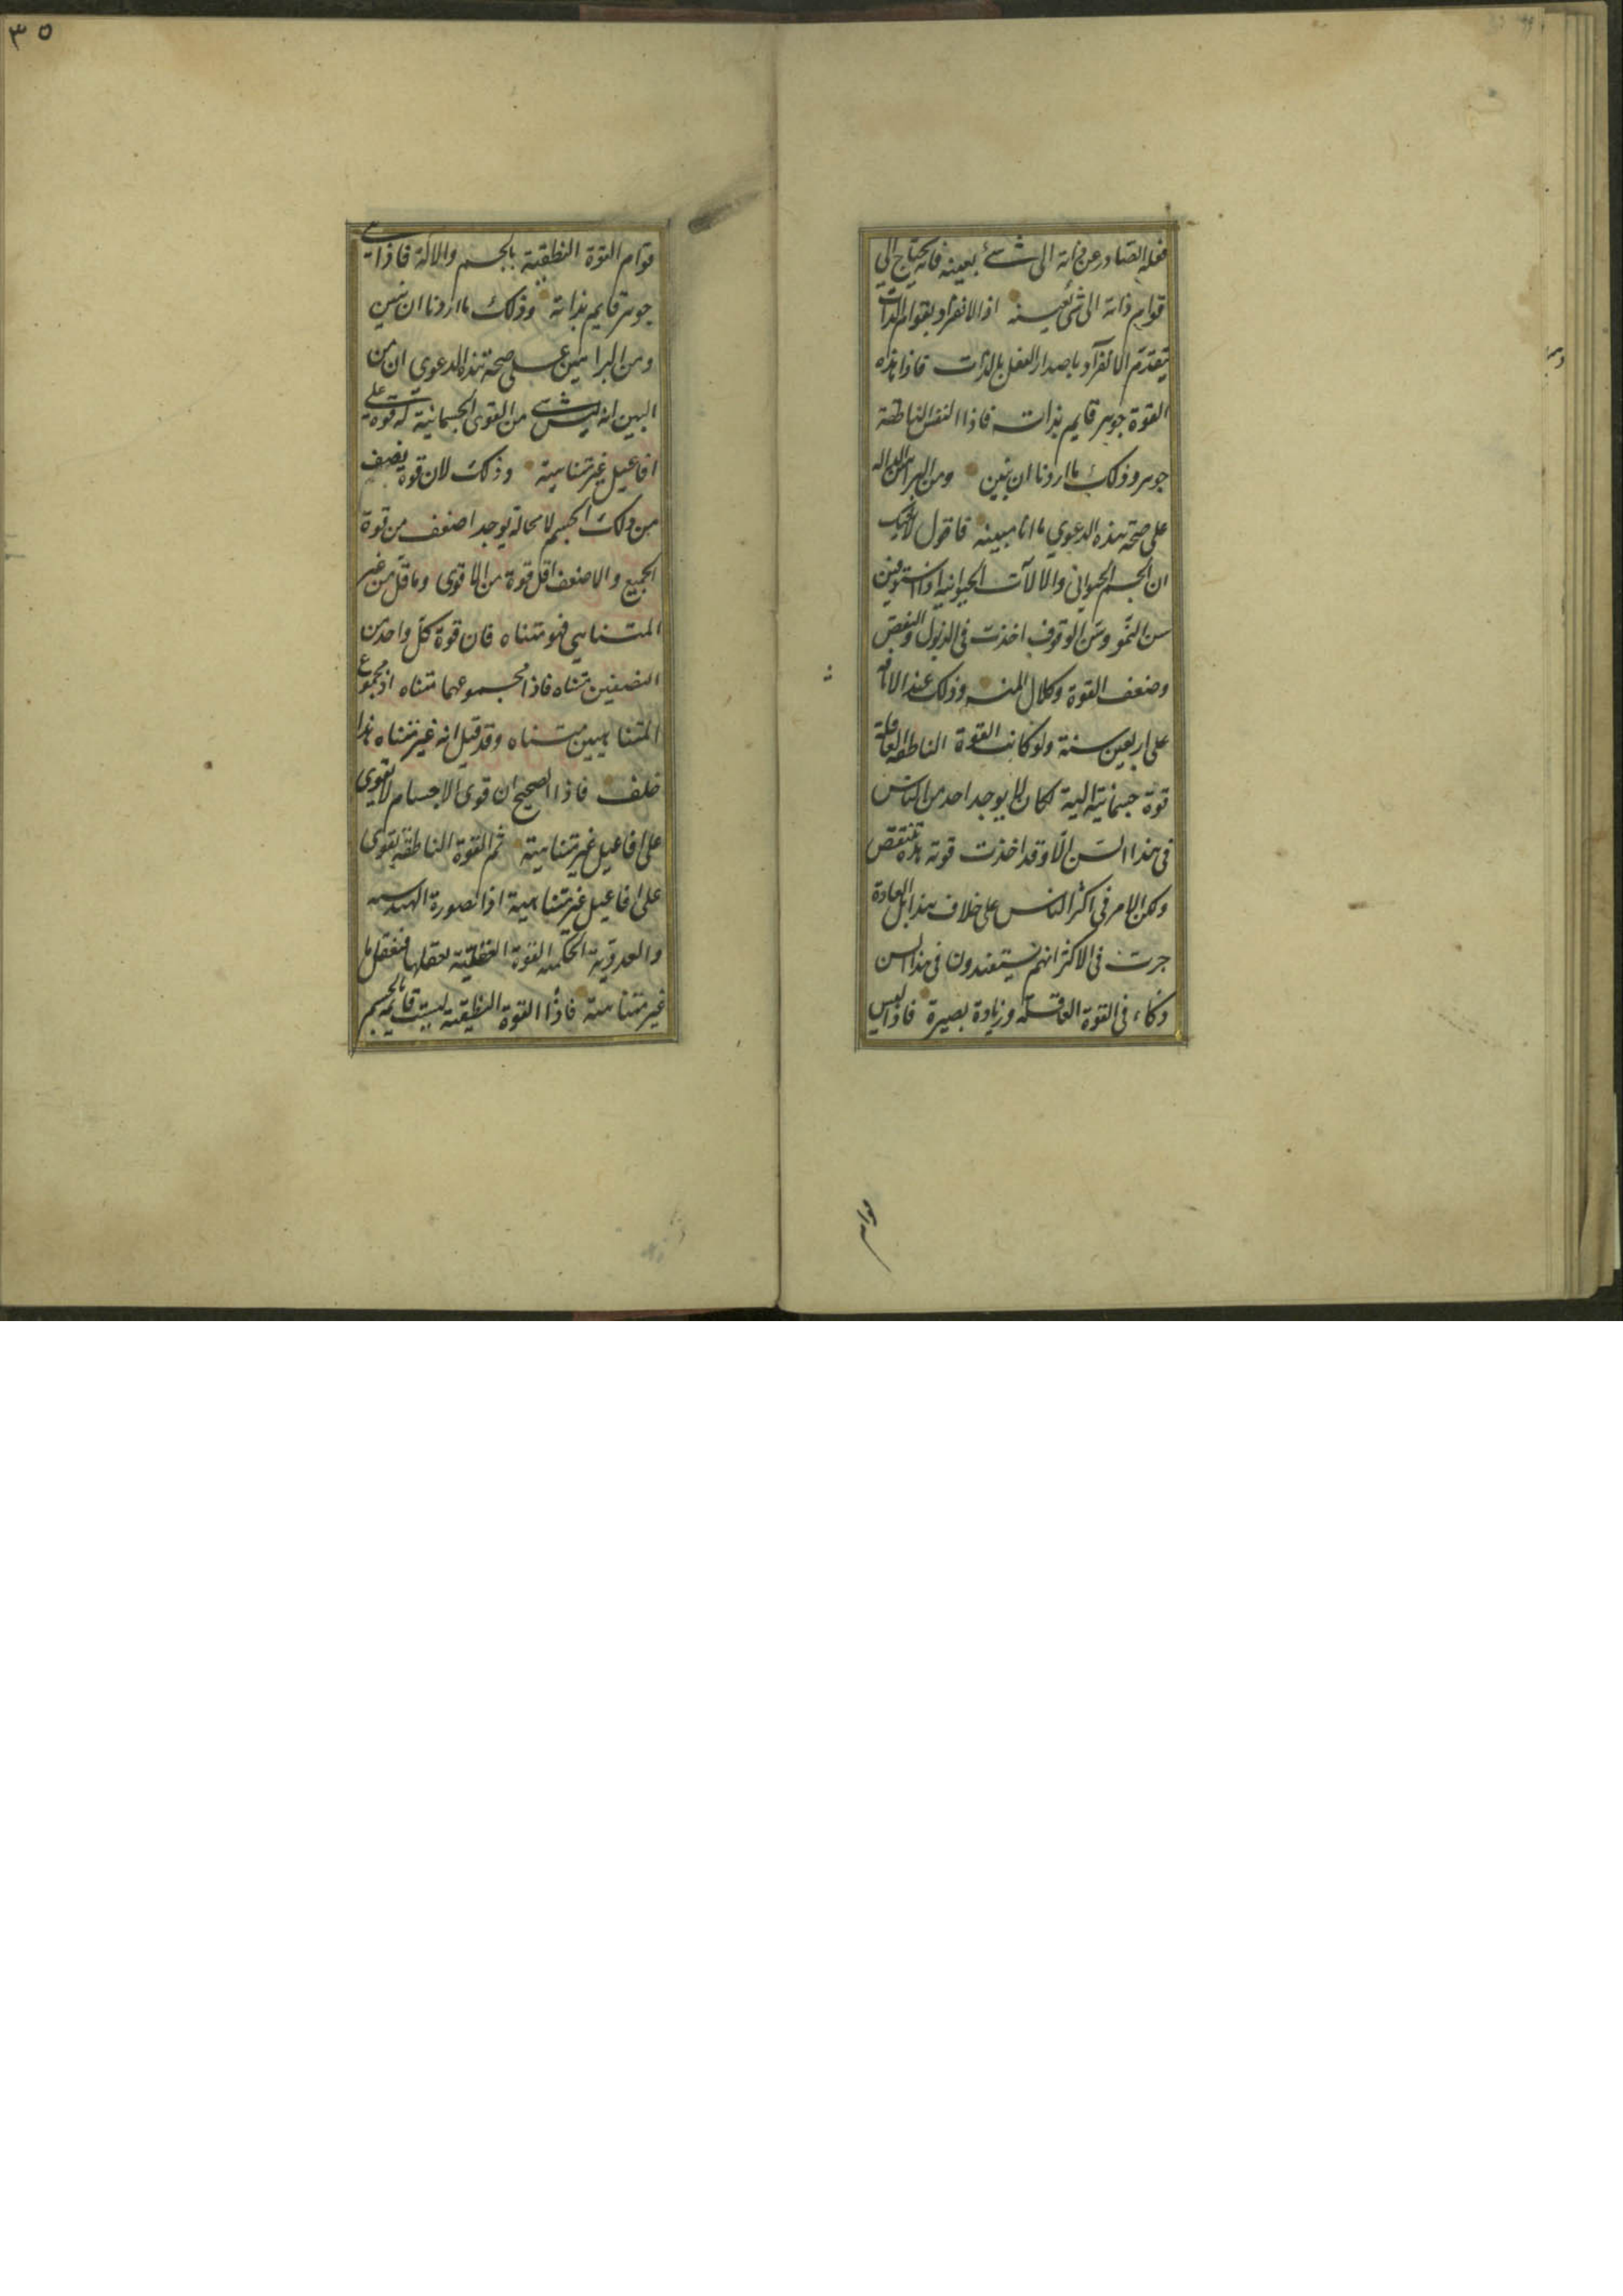 فعله الصادر عن ذاته الى شئ بعينه فانه يحتاج الي
قوام ذاته الى شئ بعينه اذ الانفراد بقوام الذات
يتقدم الانفراد باصدار الفعل بالذات فاذا هذه
القوة جوهر قايم بذاته فاذا النفس الناطقة
جوهر وذلك ما اردنا ان نبين ومن البراهين الداله
على صحة هذه الدعوي ما انا مبينه فاقول لا شك
ان الجسم الحيواني والالات الحيوانية اذا استوفين
سن النمو وسن الوقوف اخذت في الذبول والتنقص
وضعف القوة وكلال المنه وذلك عند الانافه
على اربعين سنة ولو كانت القوة الناطقة العاقلة
قوة جسمانية الية لكان لا يوجد احد من الناس
في هذا السن الا وقد اخذت قوته هذه تنتقص
ولكن الامر في اكثر الناس على خلاف هذا بل العادة
جرت في الاكثر انهم يستفيدون في هذا السن
ذكاء في القوة العاقلة وزيادة بصيرة فاذا ليس
٣٥
قوام القوة النطقية بالجسم والالة فاذا هي
جوهر قايم بذاته وذلك ما اردنا ان نبين
ومن البراهين على صحة هذه الدعوي ان من
البين انه ليس شي من القوى الجسمانية له قوة على
افاعيل غير متناهية وذلك لان قوة نصف
من ذلك الجسم لا محالة يوجد اضعف من قوة
الجميع والاضعف اقل قوة من الاقوى وما قل من غير
المتناهي فهو متناه فان قوة كل واحد من
النصفين متناه فاذا مجموعهما متناه اذ مجموع
المتناهيين متناه وقد قيل انه غير متناه هذا
خلف فاذا الصحيح ان قوى الاجسام لا تقوى
على افاعيل غير متناهية ثم القوة الناطقة يقوى
على افاعيل غير متناهية اذا الصورة الهندسه
والعددية والحكميه القوة العقلية
غير متناهية فاذا القوة النطقية ليست قايمة بالجسم